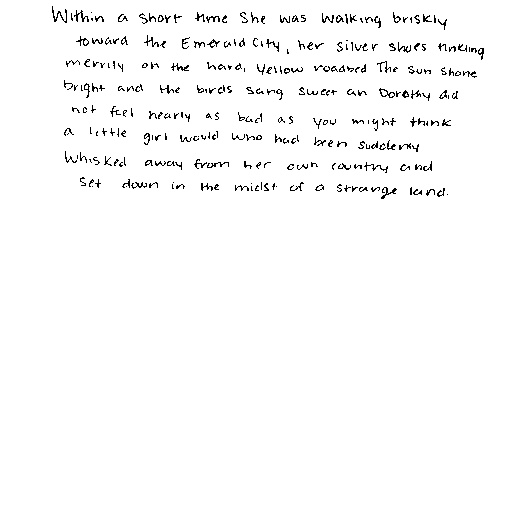 Within a short time she was walking briskly
toward the Emerald City, her silver shoes tinkling
merrily on the hard, yellow roadbed The sun shone
bright and the birds sang sweet an Dorothy did
not feel nearly as bad as you might think
a little girl would who had been suddenly
whisked away from her own country and
set down in the midst of a strange land.